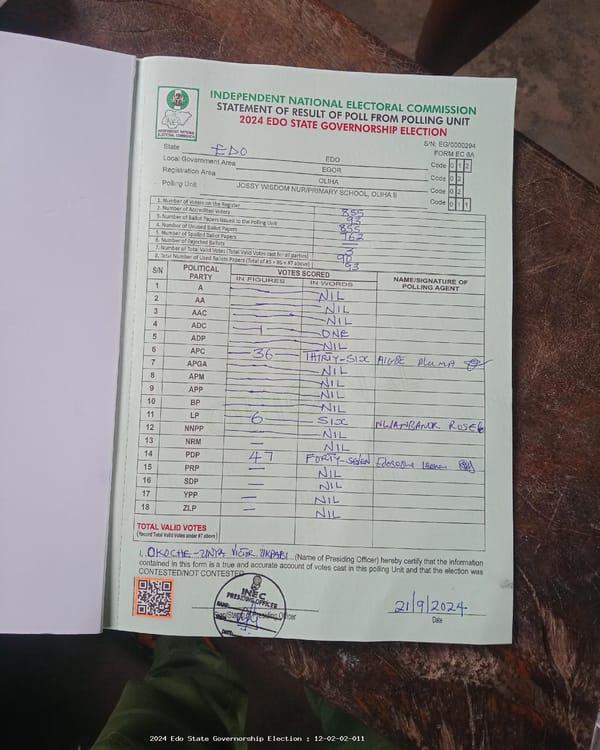 INDEPENDENT NATIONAL ELECTORAL COMMISSION
STATEMENT OF RESULT OF POLL FROM POLLING UNIT
2024 EDO STATE GOVERNORSHIP ELECTION
S/N: EG/0000294
FORM EC 8A
State EDO EDO Code 0 1 2
Local Government Area EGOR Code 0 2
Registration Area OLIHA Code 0 2
Polling Unit JOSSY WISDOM NUR/PRIMARY SCHOOL, OLIHA II Code 0 1 1
1. Number of Voters on the Register 855
2. Number of Accredited Voters 93
3. Number of Ballot Papers Issued to the Polling Unit 855
4. Number of Unused Ballot Papers 762
5. Number of Spoiled Ballot Papers —
6. Number of Rejected Ballots 3
7. Number of Total Valid Votes (Total Valid Votes cast for all parties) 90
8. Total Number of Used Ballots Papers (Total of #5 + #6 + #7 above) 93
S/N POLITICAL PARTY VOTES SCORED NAME/SIGNATURE OF POLLING AGENT
IN FIGURES IN WORDS
1 A — NIL
2 AA — NIL
3 AAC — NIL
4 ADC 1 ONE
5 ADP — NIL
6 APC 36 THIRTY-SIX
7 APGA — NIL
8 APM — NIL
9 APP — NIL
10 BP — NIL
11 LP 6 SIX
12 NNPP — NIL
13 NRM — NIL
14 PDP 47 FORTY-SEVEN
15 PRP — NIL
16 SDP — NIL
17 YPP — NIL
18 ZLP — NIL
TOTAL VALID VOTES
(Record Total Valid Votes under #7 above)
I, (Name of Presiding Officer) hereby certify that the information
contained in this form is a true and accurate account of votes cast in this polling Unit and that the election was
CONTESTED/NOT CONTESTED
INEC
PRESIDING OFFICER
21/9/2024
Date
2024 Edo State Governorship Election : 12-02-02-011